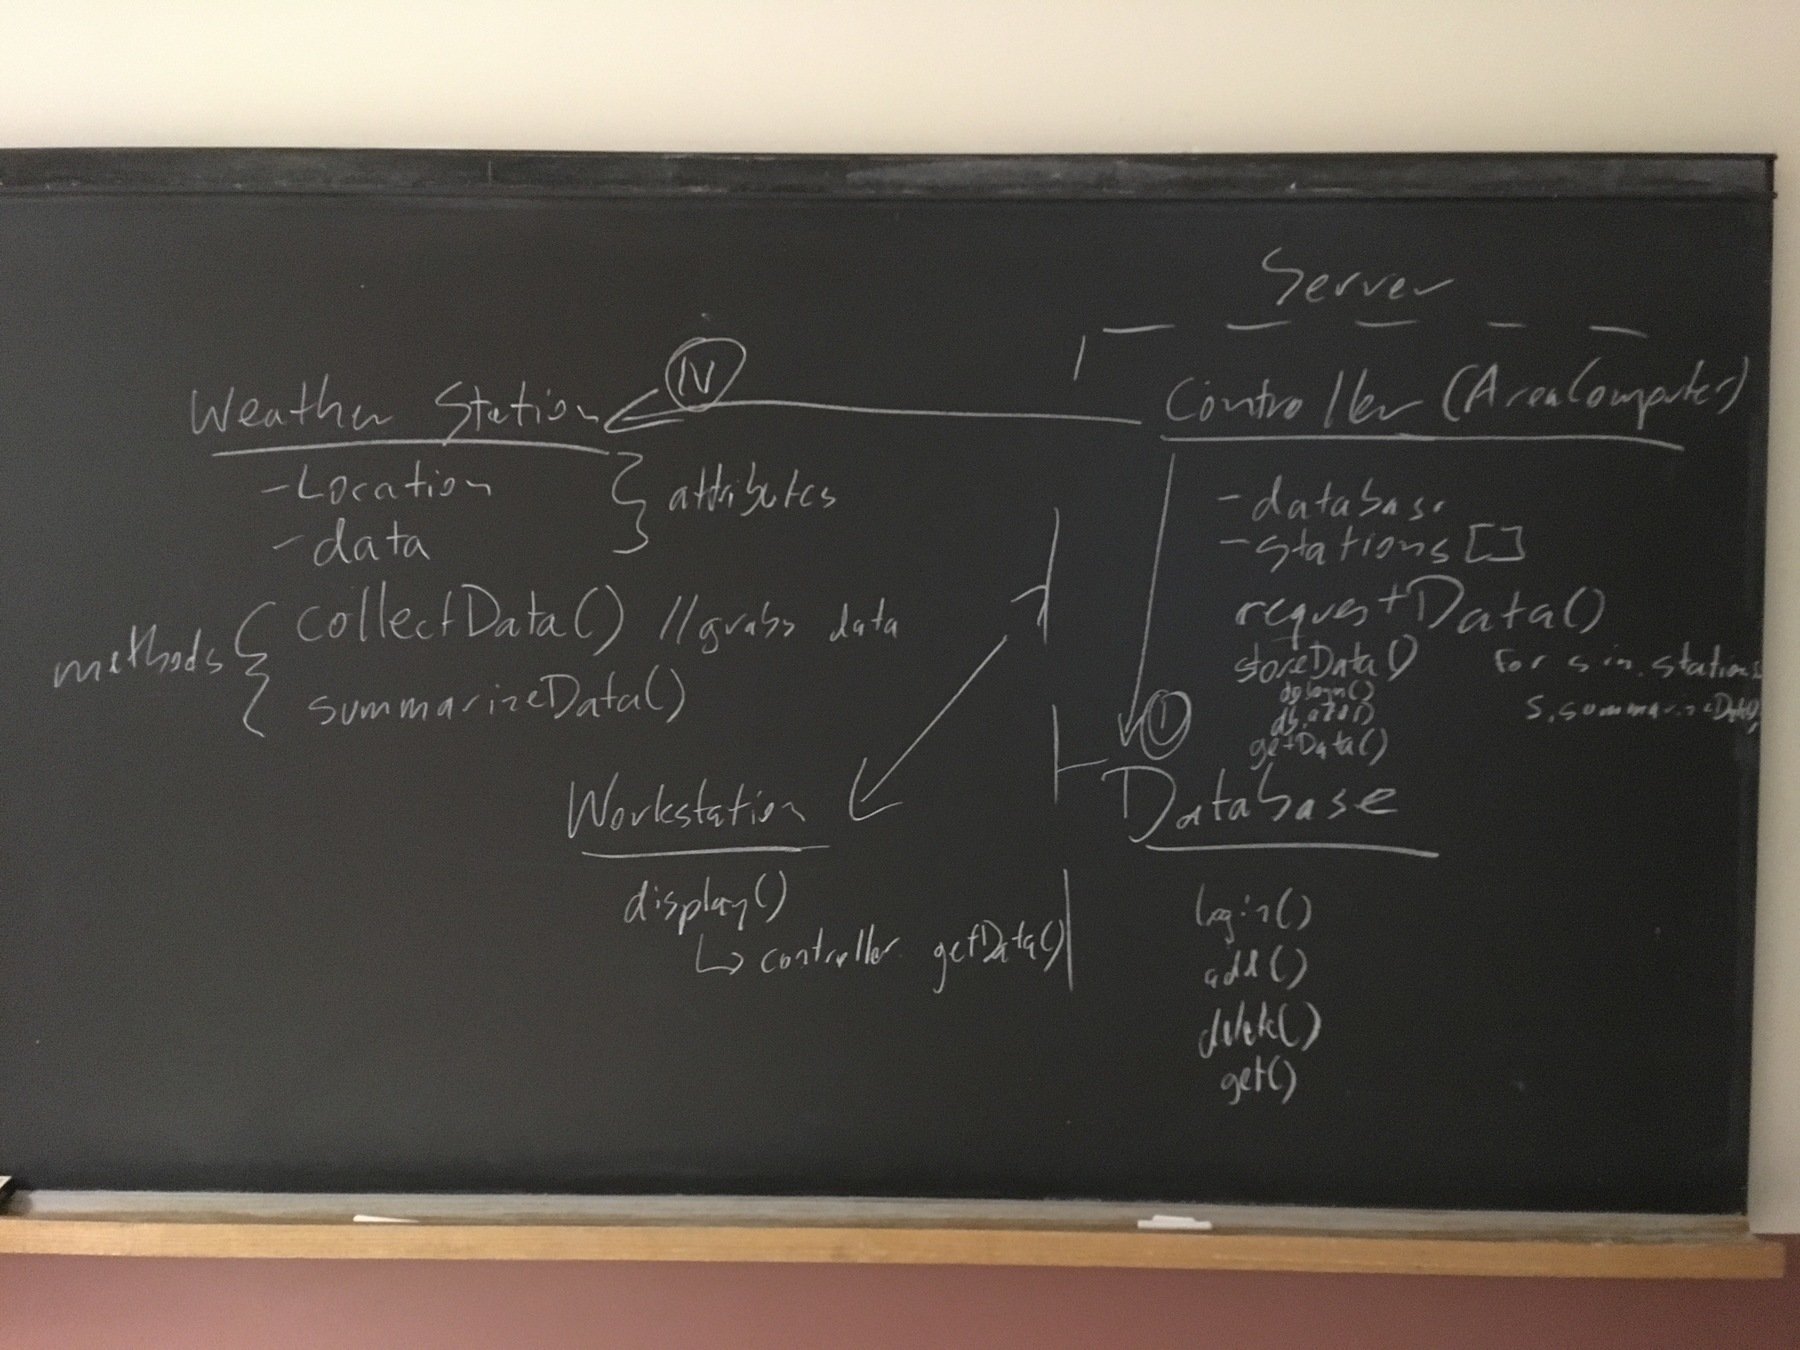 Server
Weather Station
N
Controller (AreaComputer)
- Location
- data
attributes
methods
collectData() //grabs data
summarizeData()
- database
- stations []
requestData()
storeData()
for s in stations
s.summarizeData()
db.login()
db.add()
getData()
1
Workstation
display()
↳ controller.getData()
Database
login()
add()
delete()
get()